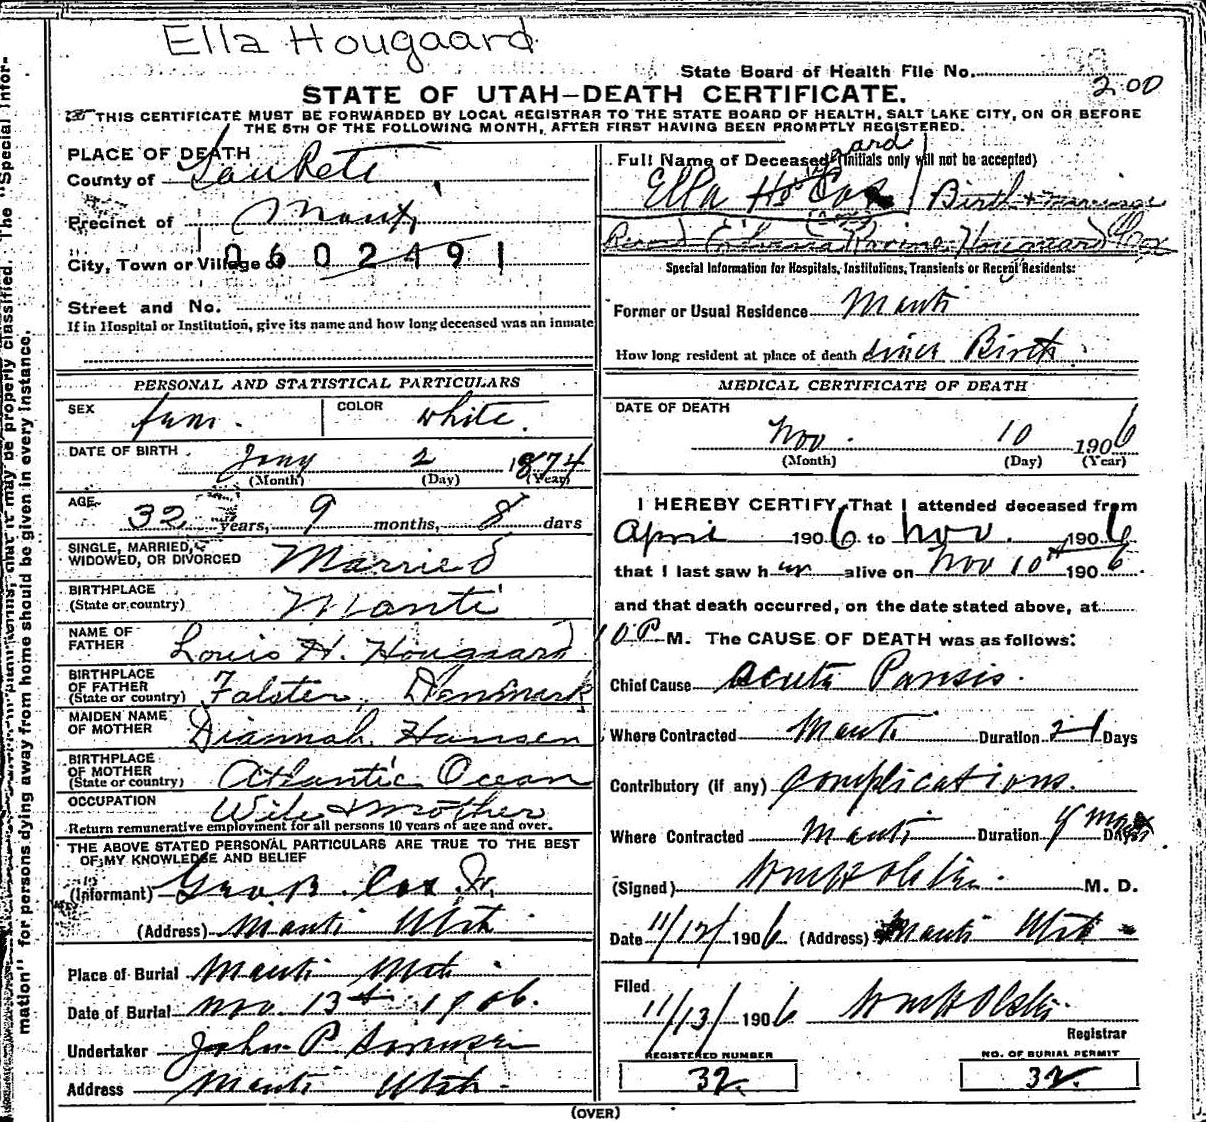 Ella Hougaard
State Board of Health File No.
200
STATE OF UTAH—DEATH CERTIFICATE.
THIS CERTIFICATE MUST BE FORWARDED BY LOCAL REGISTRAR TO THE STATE BOARD OF HEALTH, SALT LAKE CITY, ON OR BEFORE
THE 5TH OF THE FOLLOWING MONTH, AFTER FIRST HAVING BEEN PROMPTLY REGISTERED.
PLACE OF DEATH
County of SanPete
Precinct of Manti
City, Town or Village of 0602491
Street and No.
If in Hospital or Institution, give its name and how long deceased was an inmate
Full Name of Deceased (Initials only will not be accepted)
Ella Cox Birth + marriage
Record Hougaard Cox
Special Information for Hospitals, Institutions, Transients or Recent Residents:
Former or Usual Residence Manti
How long resident at place of death since Birth
PERSONAL AND STATISTICAL PARTICULARS
SEX fem. COLOR white.
DATE OF BIRTH Jany 2 1874
(Month) (Day) (Year)
AGE 32 years, 9 months, 8 days
SINGLE, MARRIED,
WIDOWED, OR DIVORCED Married
BIRTHPLACE
(State or country) Manti
NAME OF
FATHER Louis H. Hougaard
BIRTHPLACE
OF FATHER
(State or country) Falster, Denmark
MAIDEN NAME
OF MOTHER Diannah Hansen
BIRTHPLACE
OF MOTHER
(State or country) Atlantic Ocean
OCCUPATION Wife & mother
Return remunerative employment for all persons 10 years of age and over.
THE ABOVE STATED PERSONAL PARTICULARS ARE TRUE TO THE BEST
OF MY KNOWLEDGE AND BELIEF
(Informant) Geo B. Cox Jr.
(Address) Manti Utah
Place of Burial Manti Utah
Date of Burial Nov. 13th 1906.
Undertaker John P. Sorensen
Address Manti Utah.
MEDICAL CERTIFICATE OF DEATH
DATE OF DEATH
Nov. 10 1906
(Month) (Day) (Year)
I HEREBY CERTIFY, That I attended deceased from
April 1906 to Nov. 1906
that I last saw her alive on Nov 10th 1906.
and that death occurred, on the date stated above, at
10 P M. The CAUSE OF DEATH was as follows:
Chief Cause acute Paresis.
Where Contracted Manti Duration 21 Days
Contributory (if any) Complications.
Where Contracted Manti Duration mos Days
(Signed) M. D.
Date 11/12/ 1906 (Address) Manti Utah
Filed
11/13/ 1906
Registrar
REGISTERED NUMBER
32
NO. OF BURIAL PERMIT
32
(OVER)
mation" for persons dying away from home should be given in every instance.
may be properly classified. The "Special Infor-